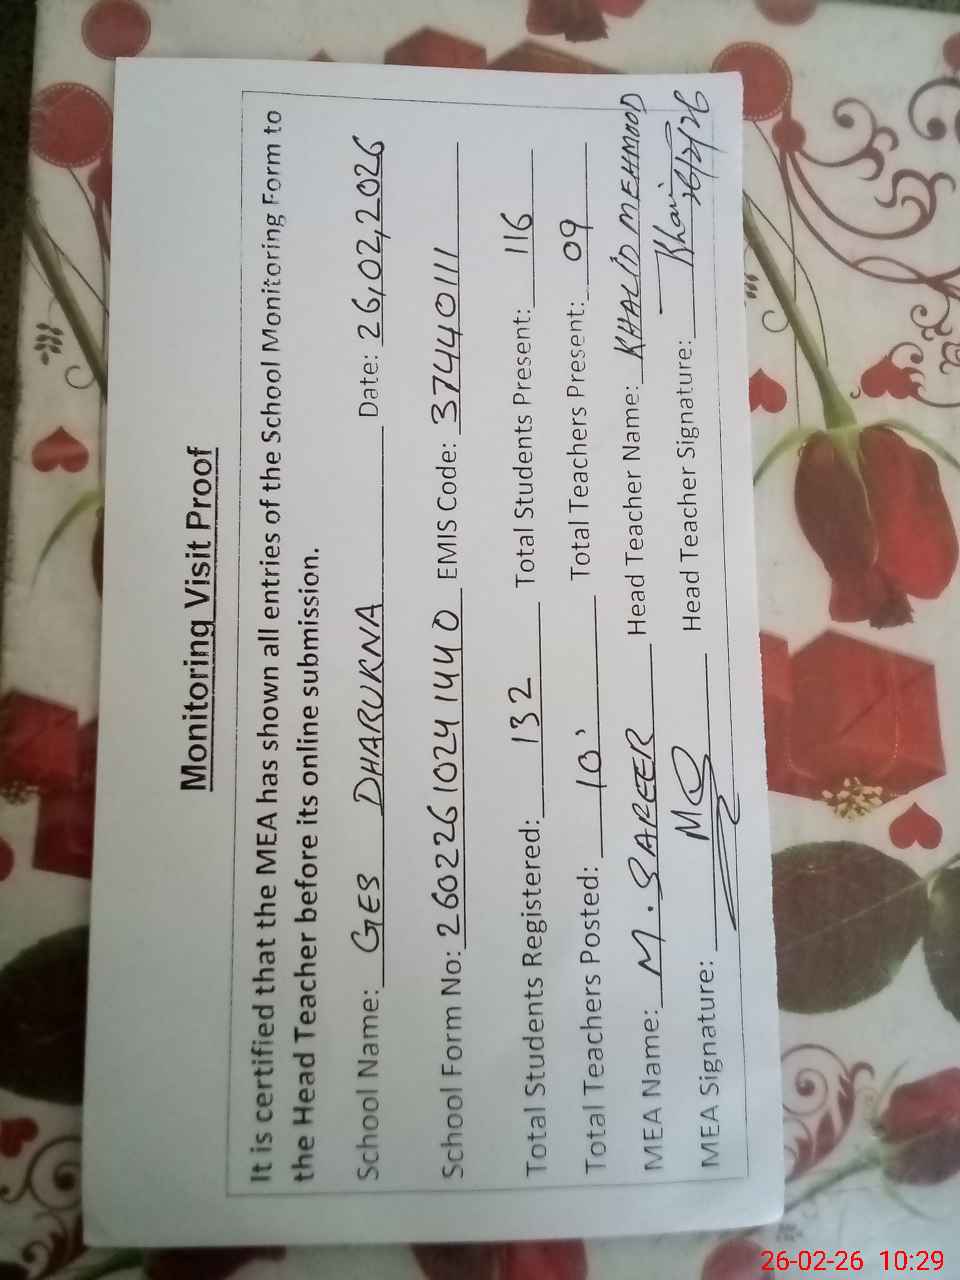 Monitoring Visit Proof
It is certified that the MEA has shown all entries of the School Monitoring Form to
the Head Teacher before its online submission.
School Name: GES DHARUKNA Date: 26,02,2026
School Form No: 26022610241440 EMIS Code: 37440111
Total Students Registered: 132 Total Students Present: 116
Total Teachers Posted: 10 Total Teachers Present: 09
MEA Name: M. SAREER Head Teacher Name: KHALID MEHMOOD
MEA Signature: MS Head Teacher Signature: 26/2/26
26-02-26 10:29